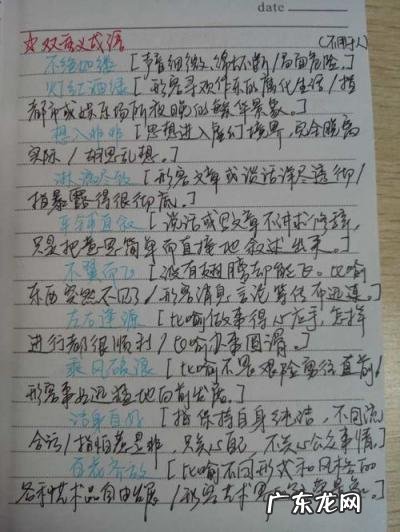 date
☆双语义成语 (不同于人)
不绝如缕[声音细微,绵延不断/局面危险。]
灯红酒绿[形容寻欢作乐的腐化生活/指
都市或娱乐场所夜晚的繁华景象。]
想入非非[思想进入虚幻境界,完全脱离
实际/胡思乱想。]
淋漓尽致[形容文章或谈话详尽透彻/
指暴露得很彻底。]
平铺直叙[说话或写文章不讲求修辞,
只是把意思简单而直接地叙述出来。]
不翼而飞[没有翅膀却能飞。比喻
东西突然不见了/形容消息言论等传布迅速。]
左右逢源[比喻做事得心应手,怎样
进行都很顺利/比喻办事圆滑。]
乘风破浪[比喻不畏艰险勇往直前/
形容事业迅猛地向前发展。]
洁身自好[指保持自身纯洁,不同流
合污/指怕惹是非,只关心自己,不关心公众事情。]
百花齐放[比喻不同形式和风格的
各种艺术品自由发展/形容艺术界
广东龙网